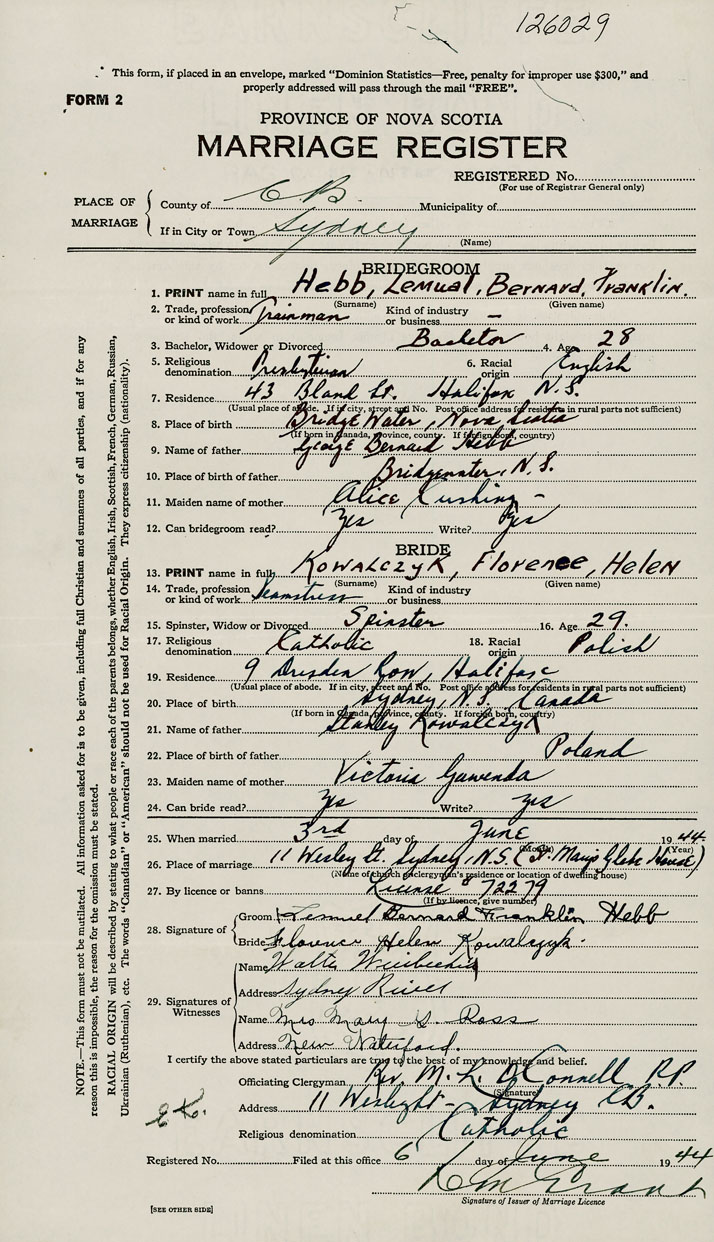 126029
This form, if placed in an envelope, marked "Dominion Statistics—Free, penalty for improper use $300," and
properly addressed will pass through the mail "FREE".
FORM 2
PROVINCE OF NOVA SCOTIA
MARRIAGE REGISTER
REGISTERED No.
(For use of Registrar General only)
PLACE OF MARRIAGE
County of C B. Municipality of
If in City or Town Sydney
(Name)
BRIDEGROOM
1. PRINT name in full Hebb, Lemual, Bernard, Franklin.
(Surname) (Given name)
2. Trade, profession or kind of work Trainman Kind of industry or business —
3. Bachelor, Widower or Divorced Bachelor 4. Age 28
5. Religious denomination Presbyterian 6. Racial origin English
7. Residence 43 Bland St. Halifax N.S.
(Usual place of abode. If in city, street and No. Post office address for residents in rural parts not sufficient)
8. Place of birth Bridge Water, Nova Scotia
(If born in Canada, province, county. If foreign born, country)
9. Name of father George Bernard Hebb
10. Place of birth of father Bridgewater, N.S.
11. Maiden name of mother Alice Cushing -
12. Can bridegroom read? Yes Write? Yes
BRIDE
13. PRINT name in full KOWALCZYK, Florence, Helen
(Surname) (Given name)
14. Trade, profession or kind of work Seamstress Kind of industry or business
15. Spinster, Widow or Divorced Spinster 16. Age 29.
17. Religious denomination Catholic 18. Racial origin Polish
19. Residence 9 Dresden Row, Halifax
(Usual place of abode. If in city, street and No. Post office address for residents in rural parts not sufficient)
20. Place of birth Sydney, N.S. Canada
(If born in Canada, province, county. If foreign born, country)
21. Name of father Stanley Kowalczyk
22. Place of birth of father Poland
23. Maiden name of mother Victoria Gawenda
24. Can bride read? Yes Write? yes
25. When married 3rd day of June 1944.
(Month) (Year)
26. Place of marriage 11 Wesley St. Sydney, N.S. (St. Mary's Glebe House)
(Name of church or clergyman's residence or location of dwelling house)
27. By licence or banns License # 72279
(If by licence, give number)
28. Signature of
Groom Lemuel Bernard Franklin Hebb
Bride Florence Helen Kowalczyk.
29. Signatures of Witnesses
Name Walter
Address Sydney River
Name Mrs Mary G. Ross
Address New Waterford.
I certify the above stated particulars are true to the best of my knowledge and belief.
Officiating Clergyman Rev. M. L. O'Connell P.P.
(Signature)
Address 11 Sydney CB.
Religious denomination Catholic
Registered No. Filed at this office 6 day of June 1944
Signature of Issuer of Marriage Licence
[SEE OTHER SIDE]
NOTE.—This form must not be mutilated. All information asked for is to be given, including full Christian and surnames of all parties, and if for any
reason this is impossible, the reason for the omission must be stated.
RACIAL ORIGIN will be described by stating to what people or race each of the parents belongs, whether English, Irish, Scottish, French, German, Russian,
Ukrainian (Ruthenian), etc. The words "Canadian" or "American" should not be used for Racial Origin. They express citizenship (nationality).